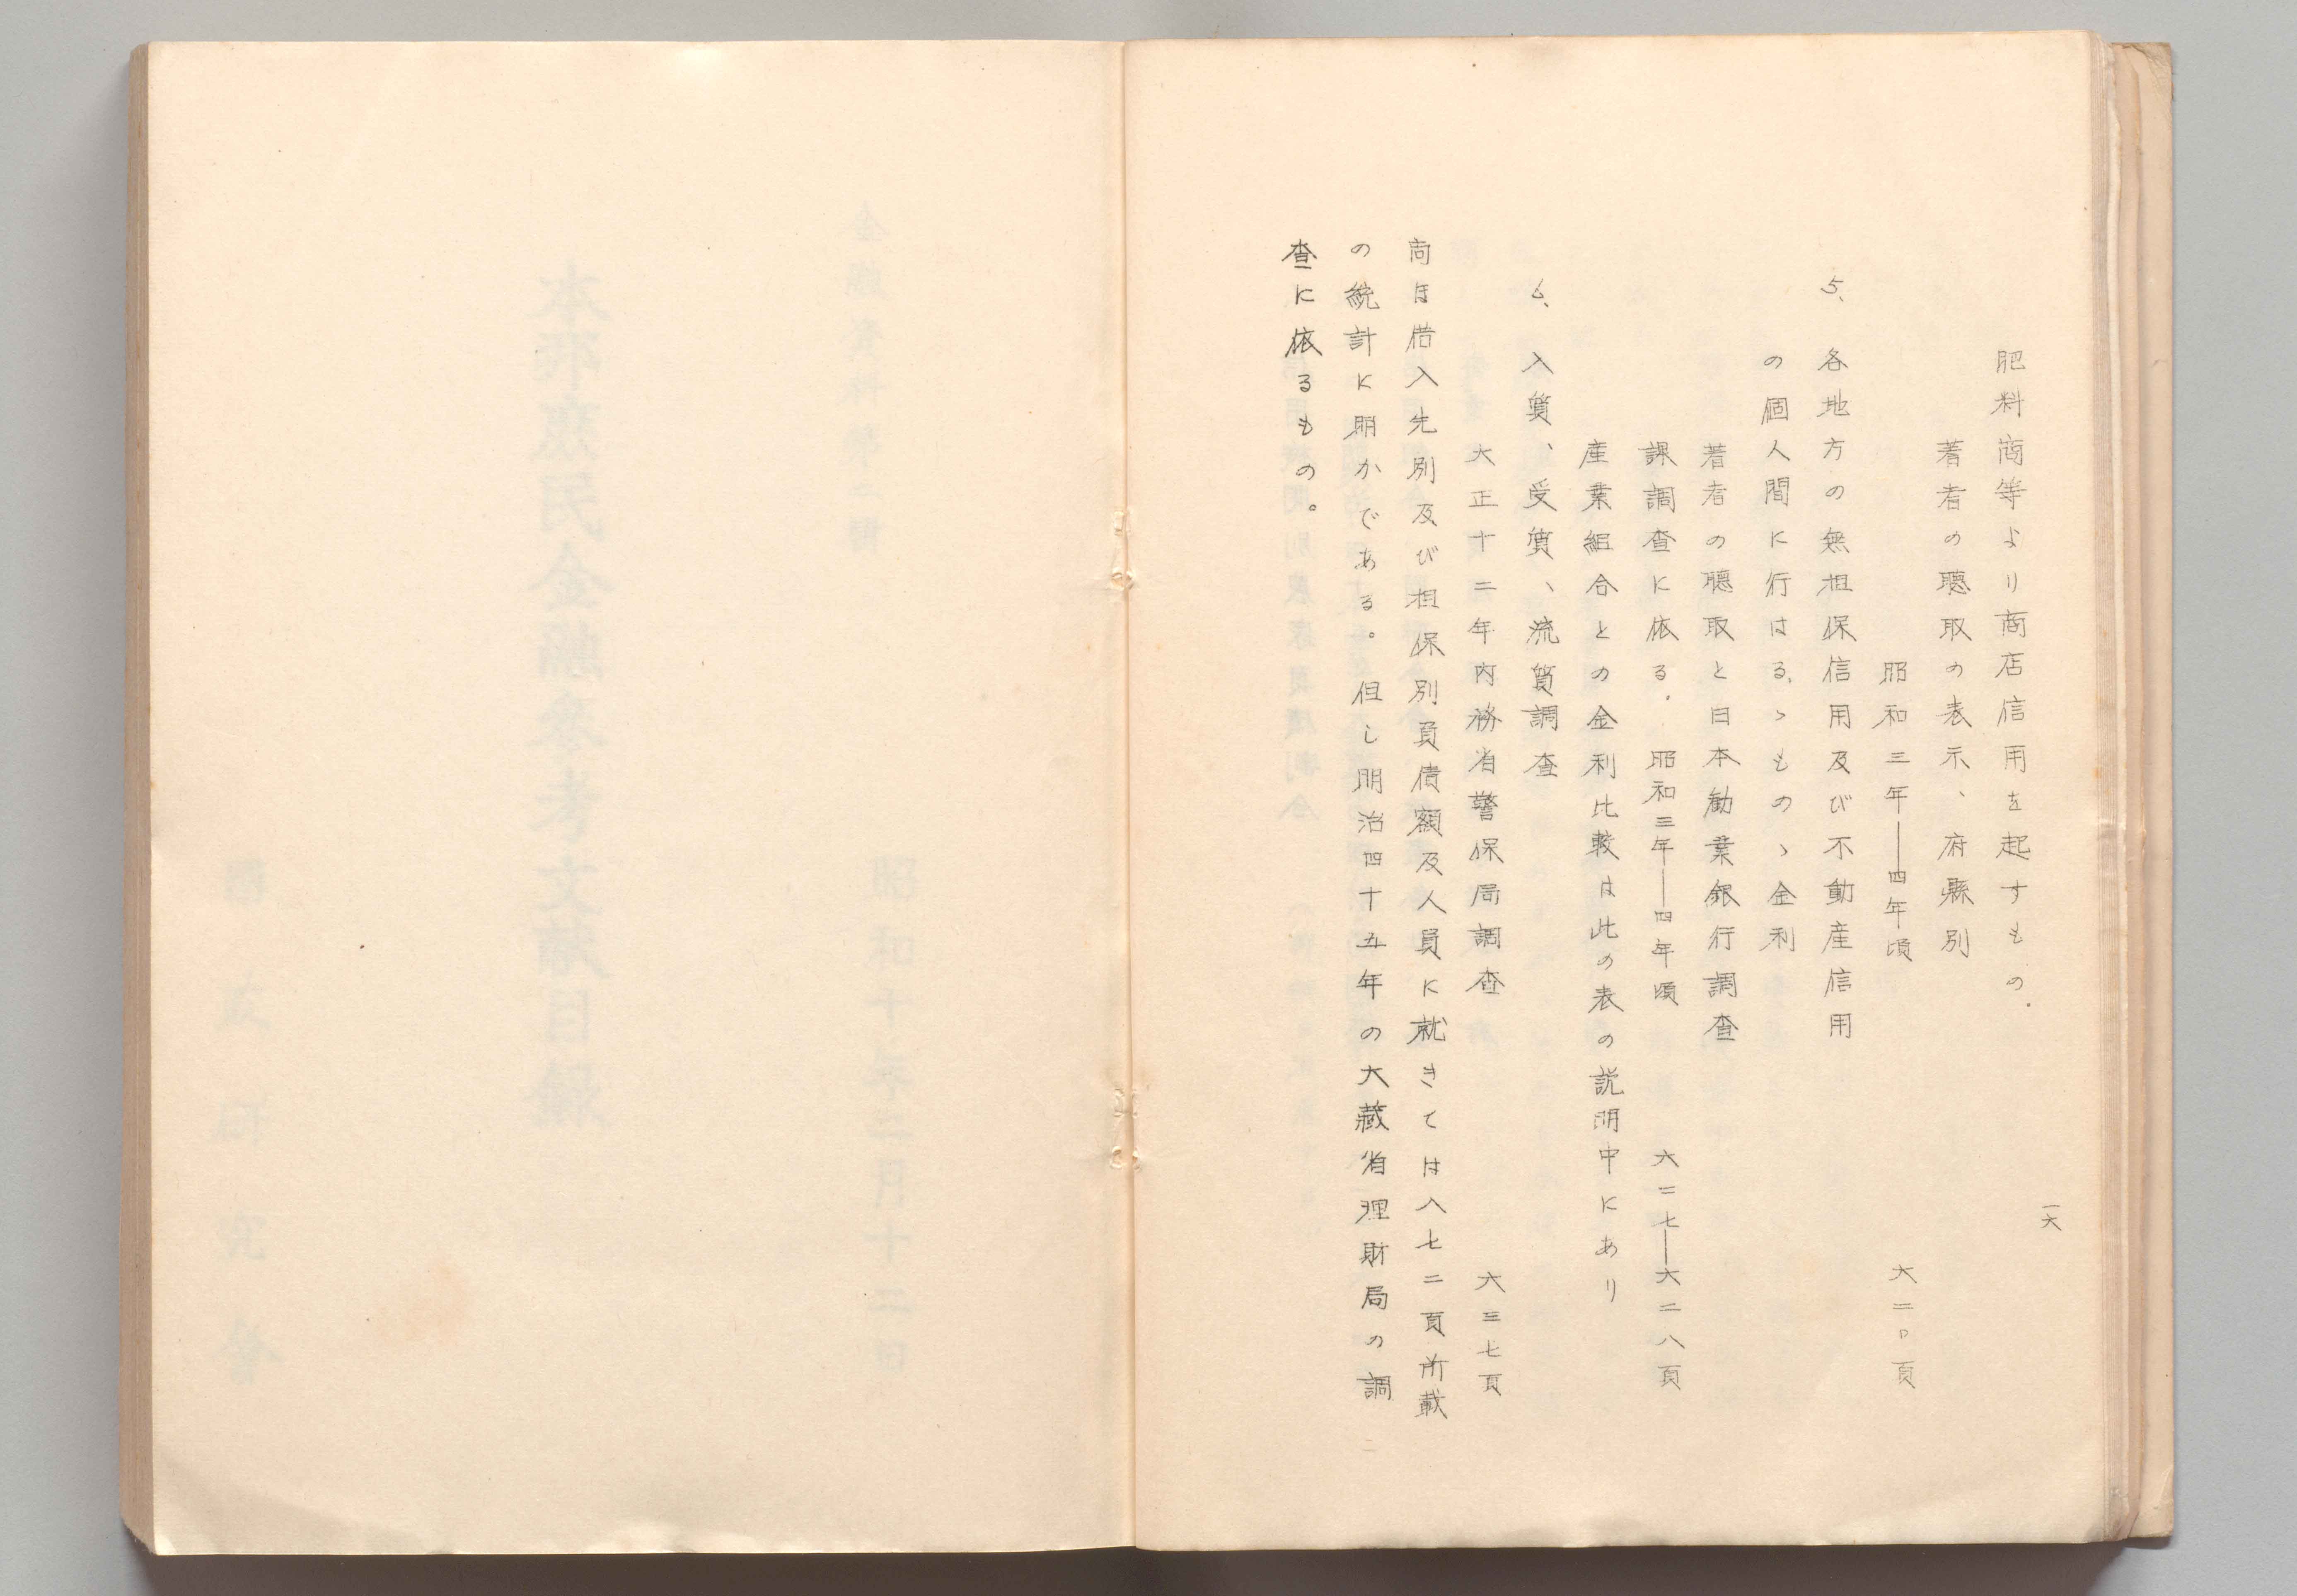 一六
肥料商等より商店信用を起すもの.
著者の聴取の表示、府縣別
昭和三年―四年頃 六二〇頁
5、各地方の無担保信用及び不動産信用
の個人間に行はるゝものゝ金利
著者の聴取と日本勧業銀行調査
課調査に依る. 昭和三年―四年頃 六二七―六二八頁
産業組合との金利比較は此の表の説明中にあり
6、入質、受質、流質調査
大正十二年内務省警保局調査 六三七頁
尚ほ借入先別及び担保別負債額及人員に就きては八七二頁所載
の統計に明かである。但し明治四十五年の大蔵省理財局の調
査に依るもの。
金融資料第二輯
昭和十年二月十二日
本邦庶民金融参考文献目録